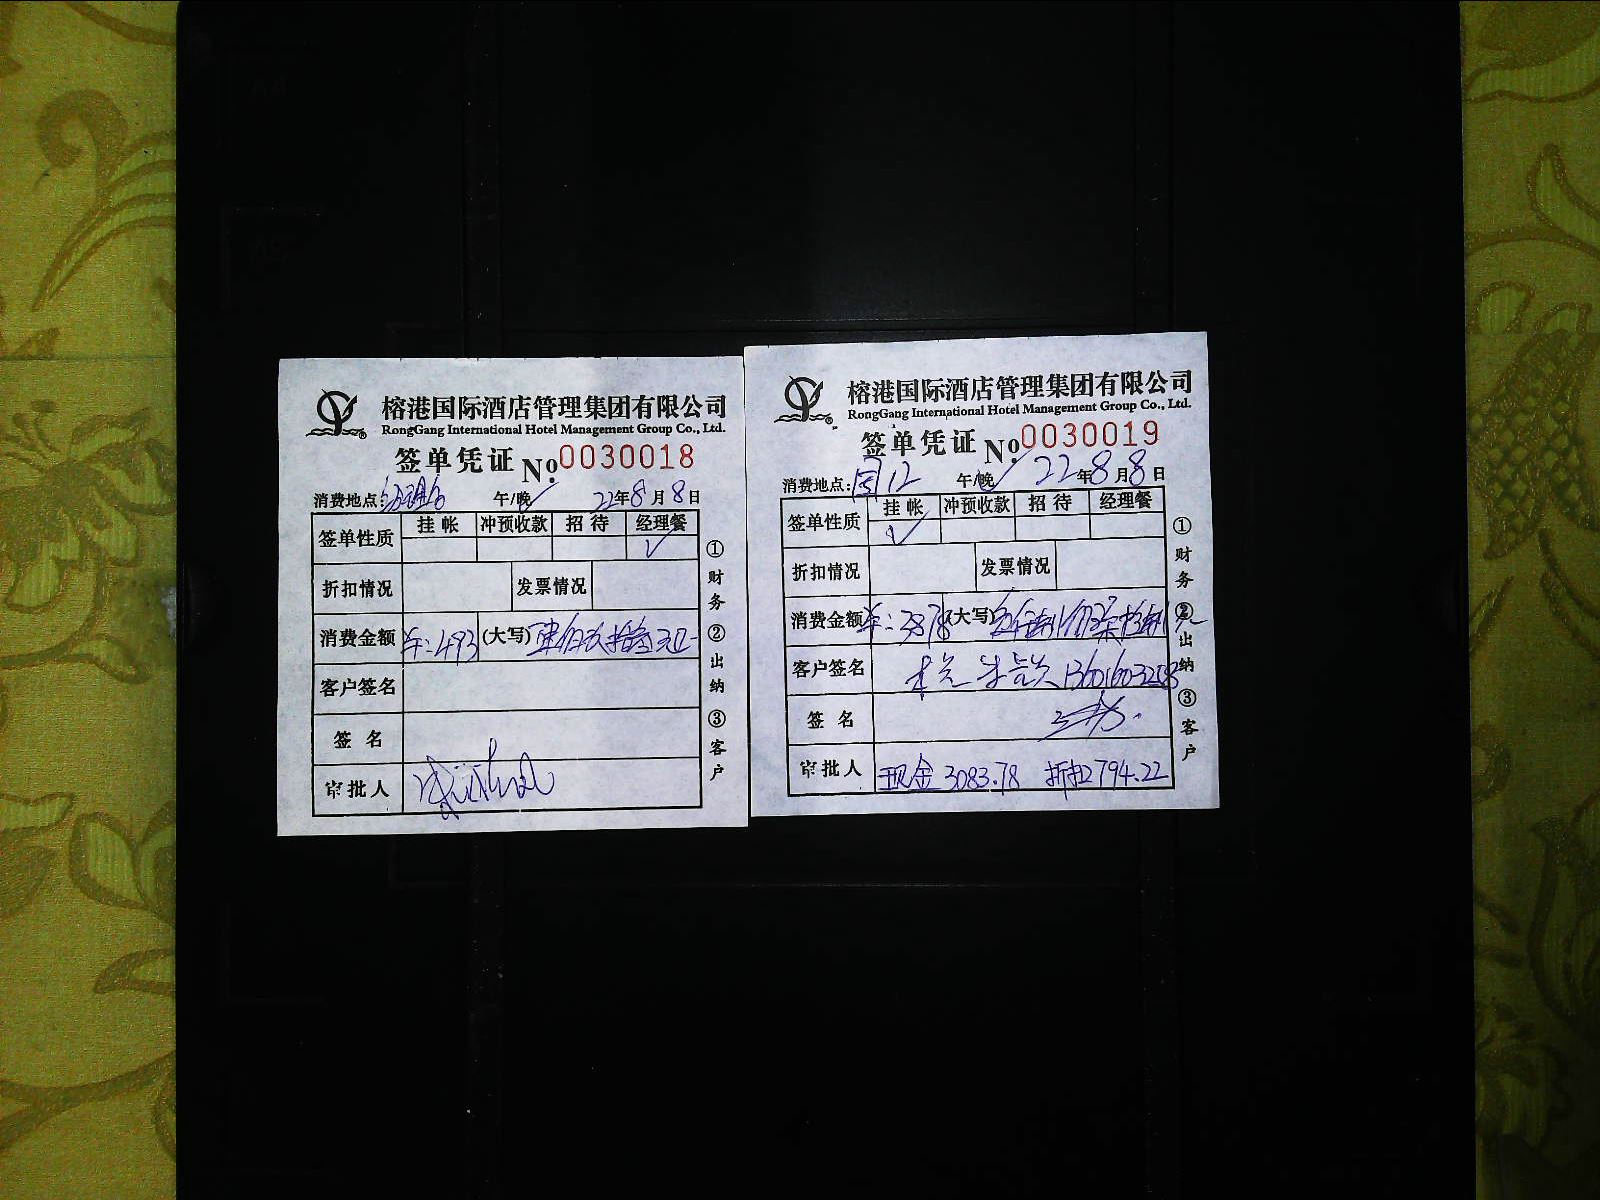 榕港国际酒店管理集团有限公司
RongGang International Hotel Management Group Co., Ltd.
签单凭证 No. 0030018
消费地点: 午/晚✓ 22年8月8日
签单性质 挂帐 冲预收款 招待 经理餐
✓
折扣情况 发票情况
消费金额 ¥:493 (大写) 肆佰玖拾叁元正
客户签名
签名
审批人
①财务 ②出纳 ③客户
榕港国际酒店管理集团有限公司
RongGang International Hotel Management Group Co., Ltd.
签单凭证 No. 0030019
消费地点: 12 午/晚✓ 22年8月8日
签单性质 挂帐 冲预收款 招待 经理餐
✓
折扣情况 发票情况
消费金额 ¥:3878 (大写) 叁仟捌佰柒拾捌元
客户签名 13601603208
签名
审批人 现金3083.78 折扣794.22
①财务 ②出纳 ③客户